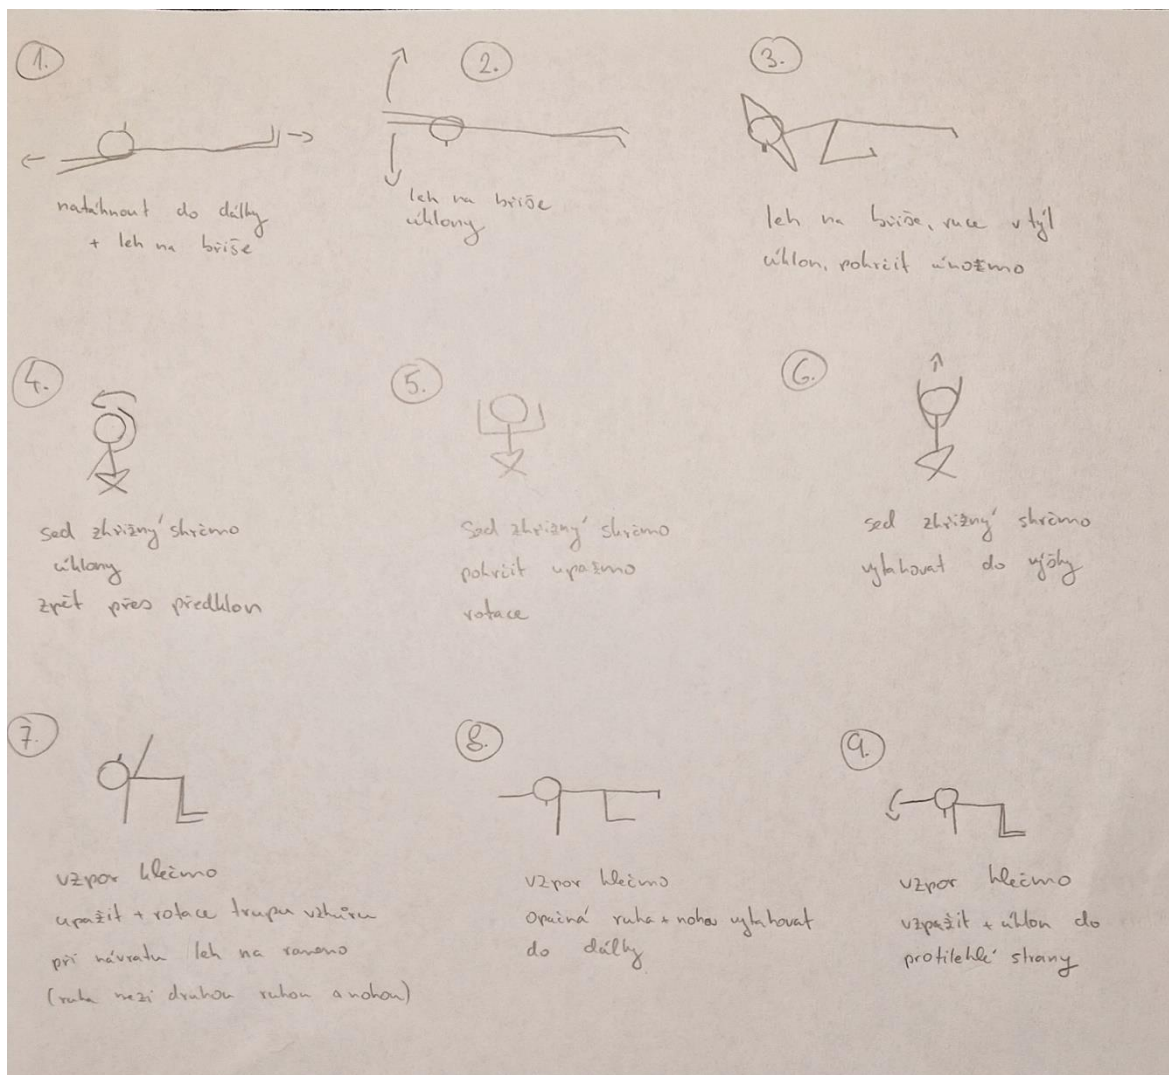 1.
natáhnout do dálky
+ leh na břiše
2.
leh na břiše
úklony
3.
leh na břiše, ruce v týl
úklon, pokrčit únožmo
4.
sed zkřižný skrčmo
úklony
zpět přes předklon
5.
Sed zkřižný skrčmo
pokrčit upažmo
rotace
6.
sed zkřižný skrčmo
vytahovat do výšky
7.
vzpor klečmo
upažit + rotace trupu vzhůru
při návratu leh na rameno
(ruka mezi druhou rukou a nohou)
8.
vzpor klečmo
opačná ruka + noha vytahovat
do dálky
9.
vzpor klečmo
vzpažit + úklon do
protilehlé strany